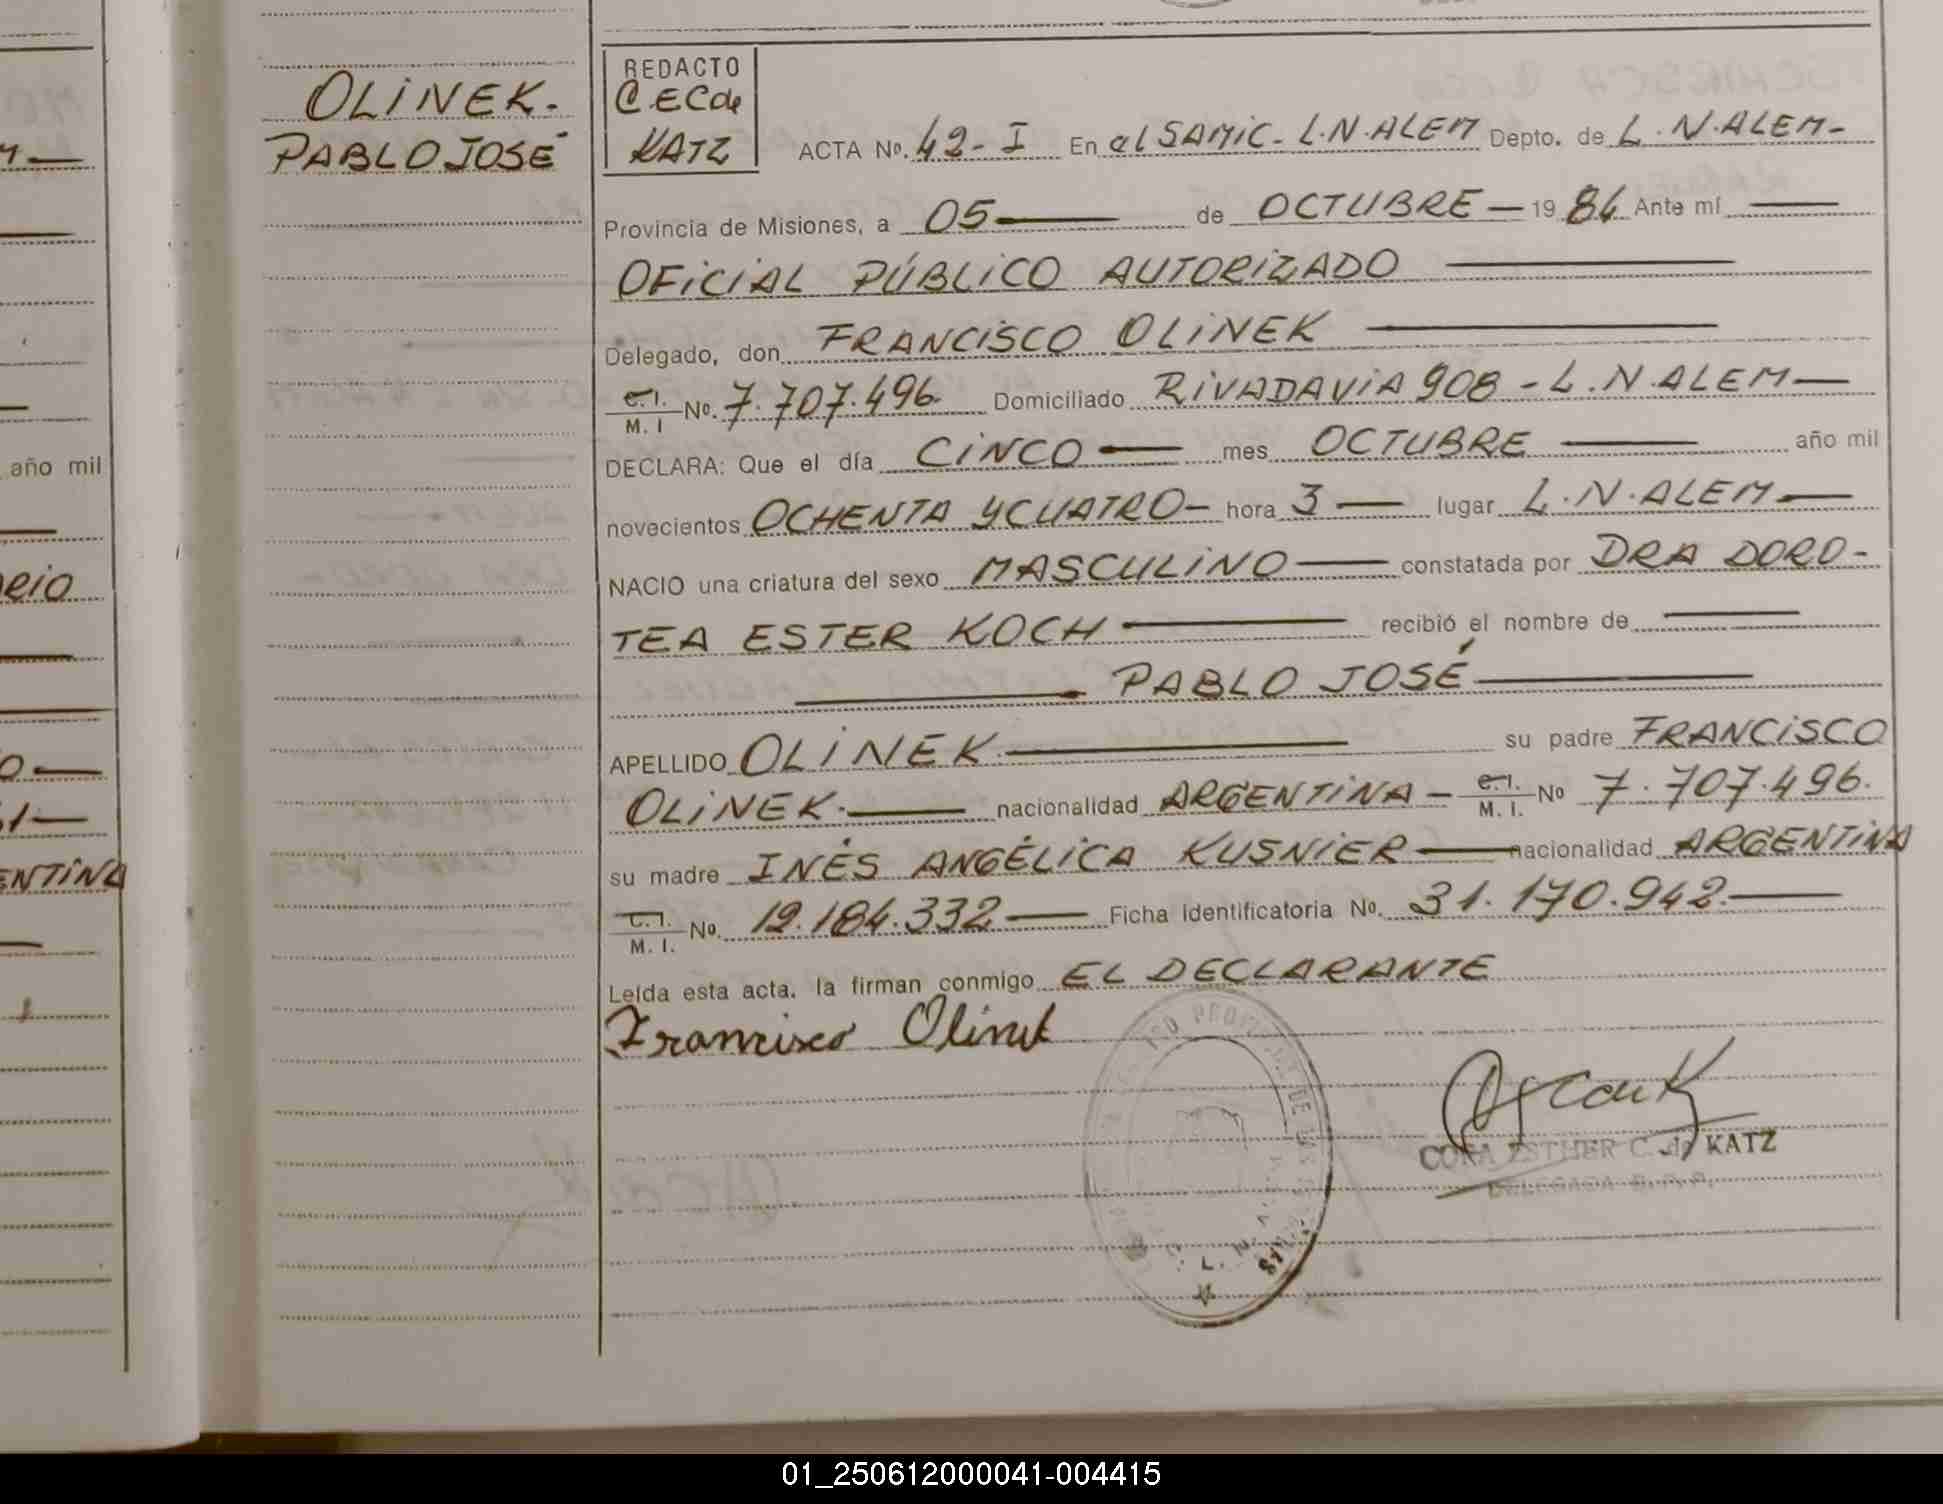 OLINEK.
PABLO JOSÉ
REDACTO
C.E.C de
KATZ
ACTA No. 42-I En el SAMIC-L.N.ALEM Depto. de L.N.ALEM-
Provincia de Misiones, a 05 de OCTUBRE 1984 Ante mí
OFICIAL PÚBLICO AUTORIZADO
Delegado, don FRANCISCO OLINEK
C.I.
M.I No. 7.707.496. Domiciliado RIVADAVIA 908-L.N.ALEM
DECLARA: Que el día CINCO mes OCTUBRE año mil
novecientos OCHENTA Y CUATRO- hora 3 lugar L.N.ALEM
NACIO una criatura del sexo MASCULINO constatada por DRA DORO-
TEA ESTER KOCH recibió el nombre de
PABLO JOSÉ
APELLIDO OLINEK su padre FRANCISCO
OLINEK. nacionalidad ARGENTINA- C.I.
M.I. No 7.707.496.
su madre INÉS ANGÉLICA KUSNIER nacionalidad ARGENTINA
C.I.
M.I. No. 12.184.332 Ficha Identificatoria No. 31.170.942.
Leída esta acta, la firman conmigo EL DECLARANTE
Francisco Olinek
CORA ESTHER C. de KATZ
DELEGADA
año mil
ENTINA
01_250612000041-004415